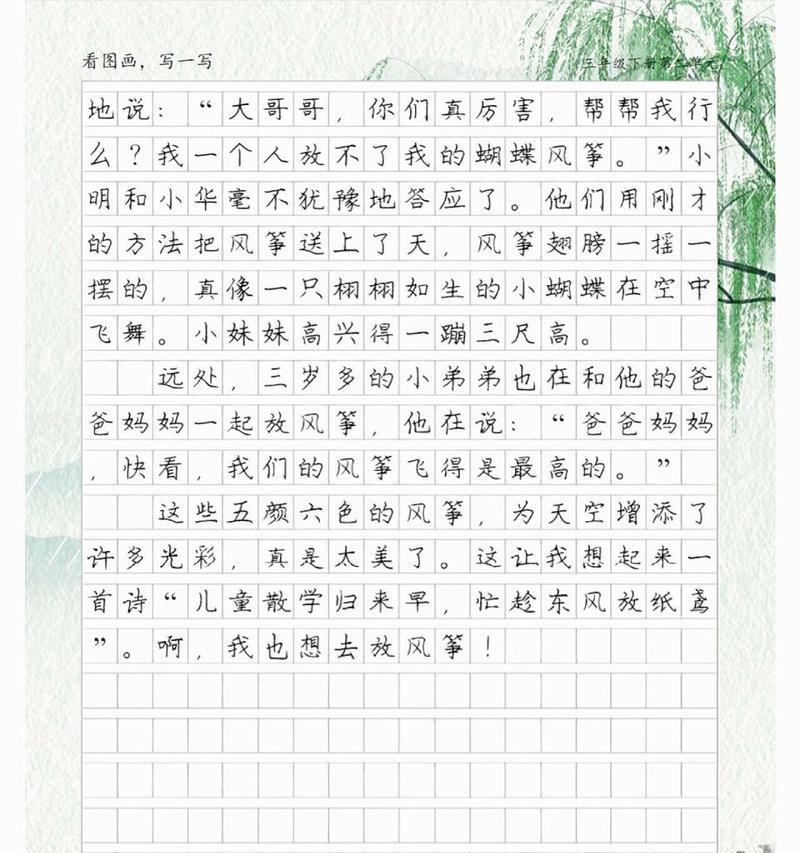 看图画，写一写
三年级下册第二单元
地说：“大哥哥，你们真厉害，帮帮我行
么？我一个人放不了我的蝴蝶风筝。”小
明和小华毫不犹豫地答应了。他们用刚才
的方法把风筝送上了天，风筝翅膀一摇一
摆的，真像一只栩栩如生的小蝴蝶在空中
飞舞。小妹妹高兴得一蹦三尺高。
远处，三岁多的小弟弟也在和他的爸
爸妈妈一起放风筝，他在说：“爸爸妈妈
，快看，我们的风筝飞得是最高的。”
这些五颜六色的风筝，为天空增添了
许多光彩，真是太美了。这让我想起来一
首诗“儿童散学归来早，忙趁东风放纸鸢
”。啊，我也想去放风筝！